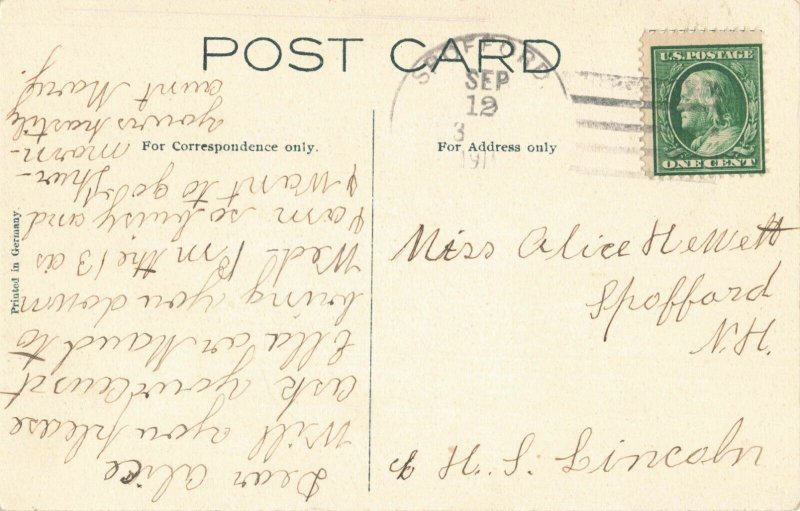 POST CARD
SPOFFORD
SEP
12
3
191
U.S. POSTAGE
ONE CENT
For Correspondence only.
For Address only
Printed in Germany.
Miss Alice Hewett
Spofford
N.H.
H. S. Lincoln
Dear Alice
Will you please
ask your Aunt
Ella or Maud to
bring you down
Wed. P.m the 13 as
I am so busy and
I want to go off
Thur-
morn-
yours hastily
aunt Mary.